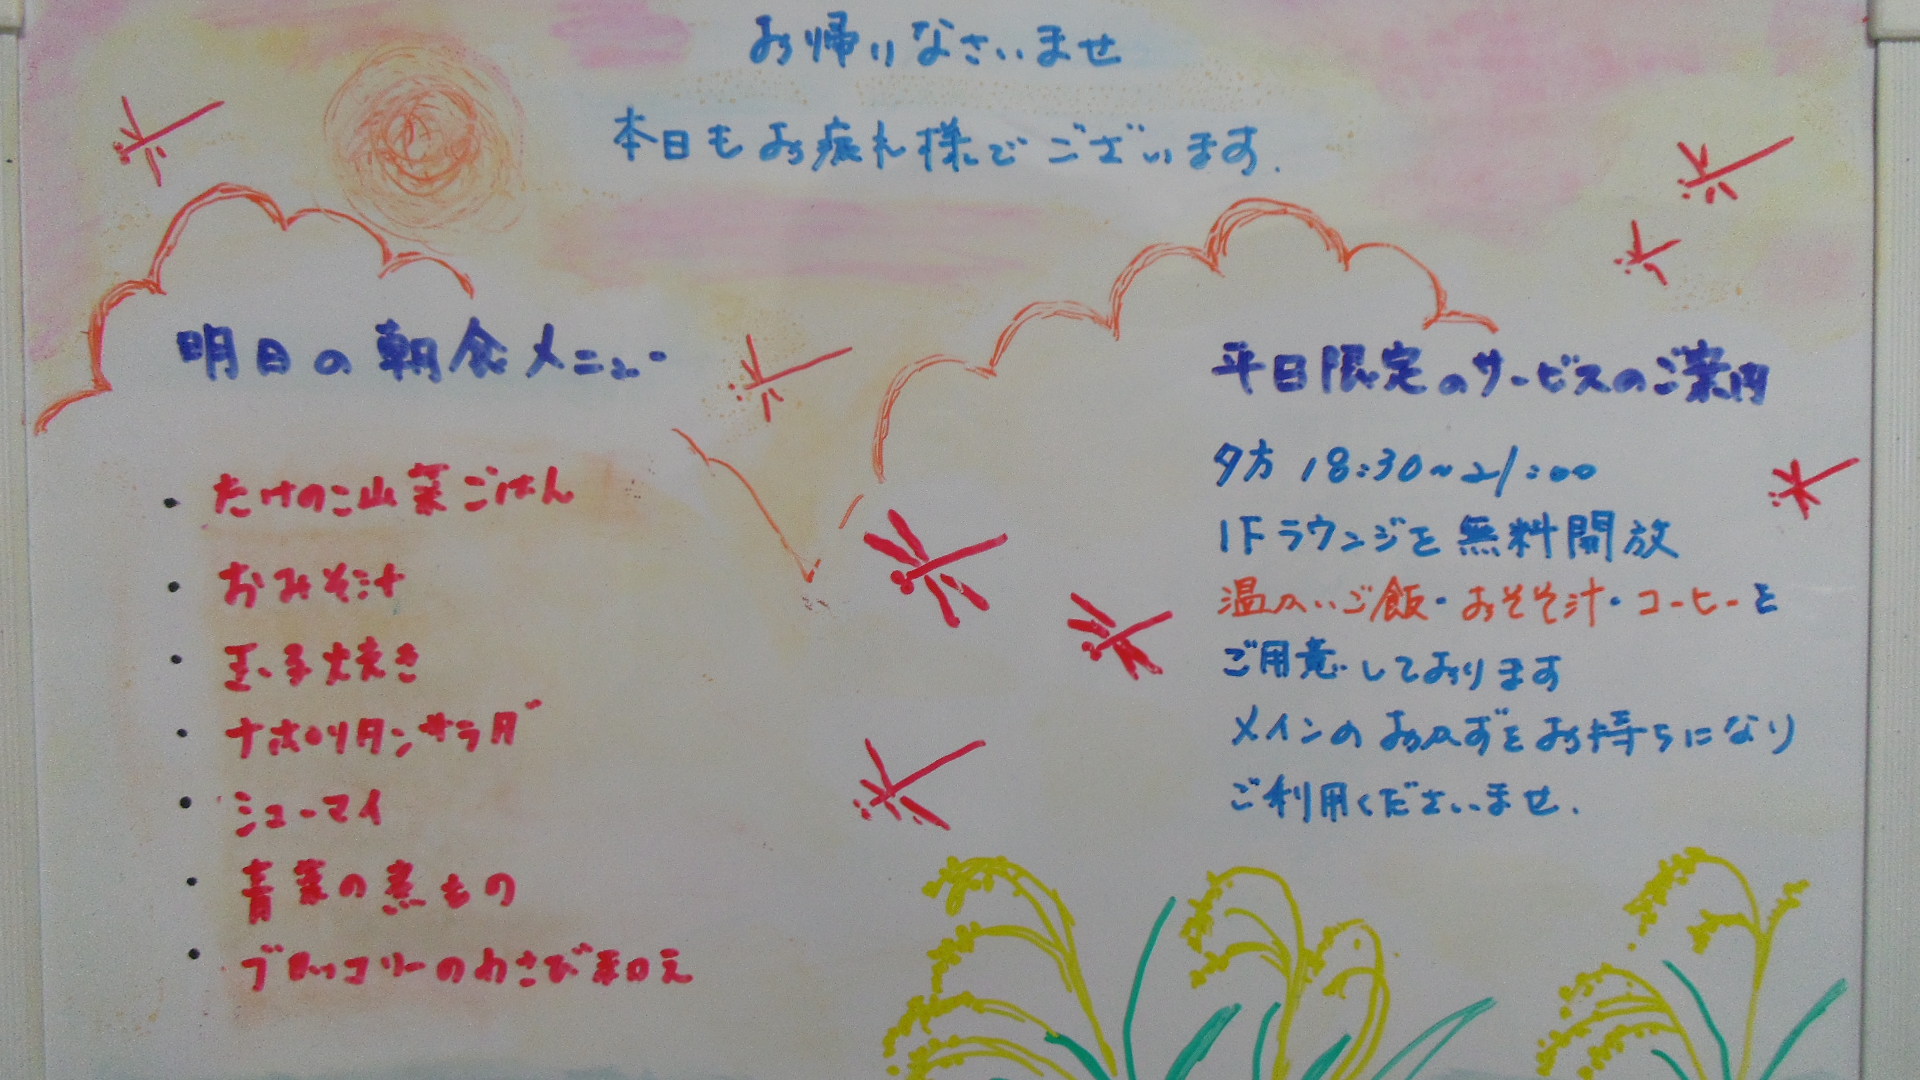 お帰りなさいませ
本日もお疲れ様でございます.
明日の朝食メニュー
・たけのこ山菜ごはん
・おみそ汁
・玉子焼き
・ナポリタンサラダ
・シューマイ
・青菜の煮もの
・ブロッコリーのわさび和え
平日限定のサービスのご案内
夕方 18:30~21:00
1Fラウンジを無料開放
温かいご飯・おみそ汁・コーヒーを
ご用意しております
メインのおかずをお持ちになり
ご利用くださいませ.